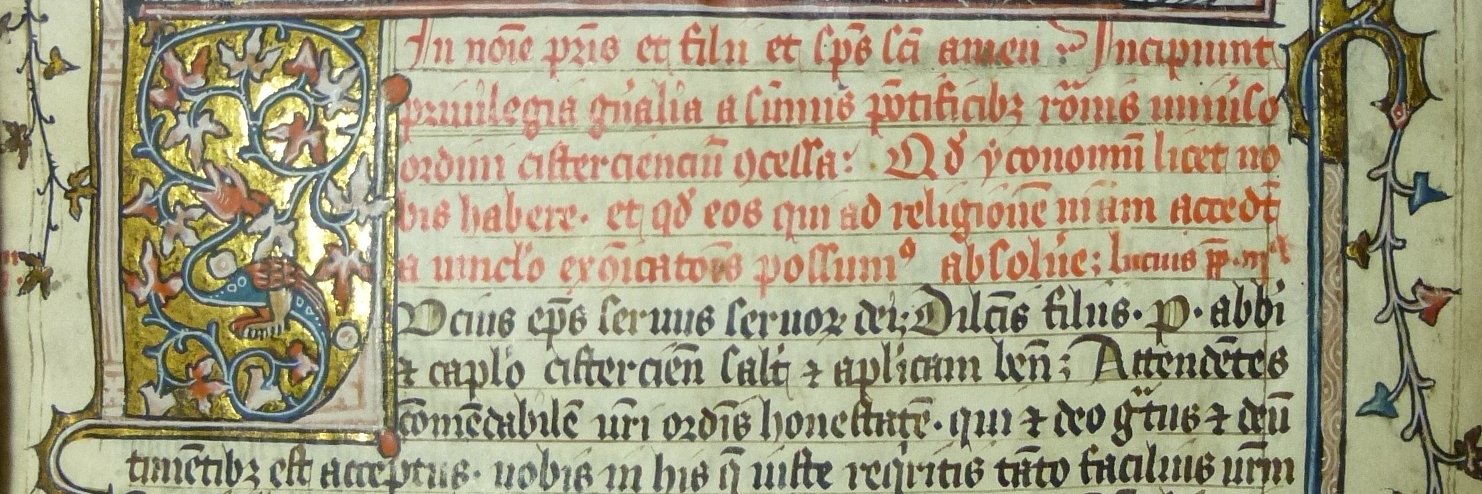 In noīe pr̄is et filii et sp̄s sc̄i amen Incipiunt
priuilegia gn̄alia a sūmis pōtificibꝫ rōnis uniuʼso
ordini cistercienciū ꝯcessa: Qd̄ yconomū licet no
bis habere. et qd̄ eos qui ad religionē ur̄am accedt̄
a uinclo exōicatōis possumꝰ absolūe; lucius pp̄
ucius ep̄s seruus seruoꝝ dei; Dilcīs filiis. P. abbi
⁊ caplo cistercieñ salt̄ ⁊ aplicam beñ; Attendētes
cōmēdabilē ur̄i ordīs honestatē. qui ⁊ deo gͣtus ⁊ deū
timētibꝫ est acceptus. uobis in his q̄ iuste reqͥritis tāto facilius ur̄m